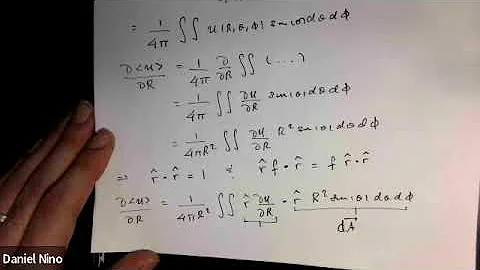 = 1/4π ∬ u(R, θ, φ) sin(θ) dθ dφ
∂<u>/∂R = 1/4π ∂/∂R ∬ (...)
= 1/4π ∬ ∂u/∂R sin(θ) dθ dφ
= 1/4πR² ∬ ∂u/∂R R² sin(θ) dθ dφ
⇒ r̂ • r̂ = 1 & r̂ f • r̂ = f r̂ • r̂
∂<u>/∂R = 1/4πR² ∬ r̂ ∂u/∂R • r̂ R² sin(θ) dθ dφ
dA⃗
Daniel Nino